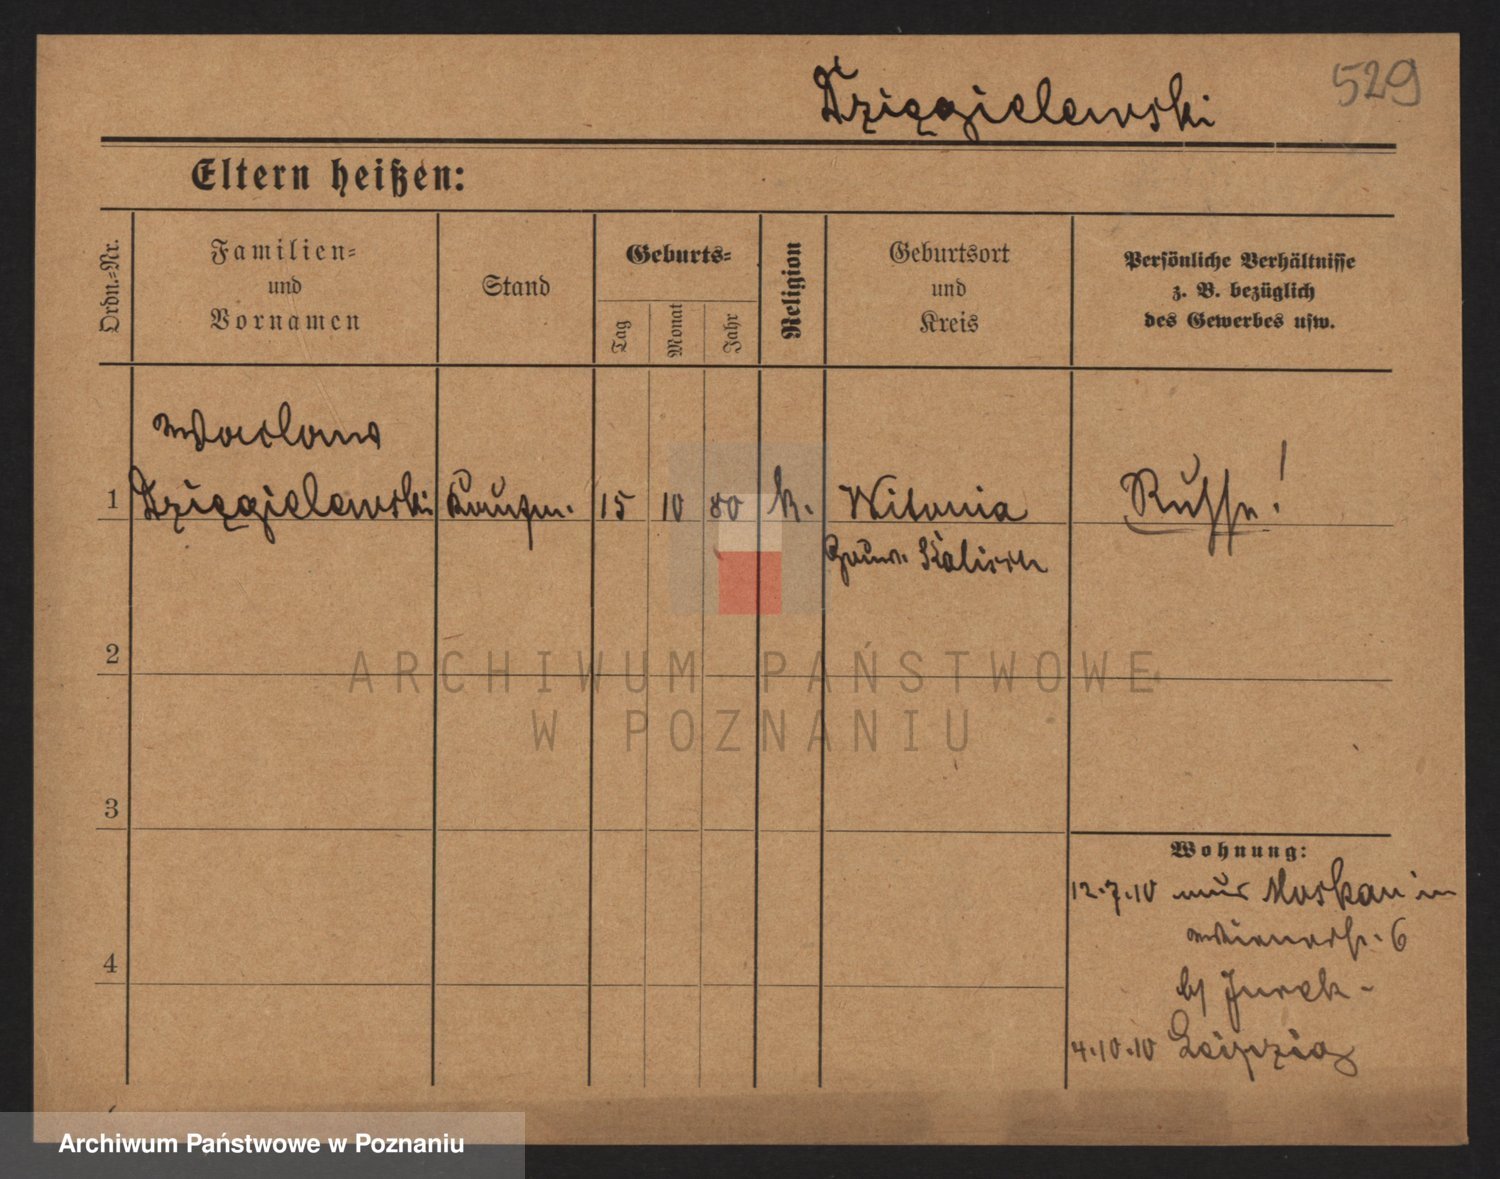 529
Dzięgielewski
Eltern heißen:
Ordn.=Nr.
Familien=
und
Vornamen
Stand
Geburts=
Tag
Monat
Jahr
Religion
Geburtsort
und
Kreis
Persönliche Verhältnisse
z. B. bezüglich
des Gewerbes usw.
Waclaw
1 Dzięgielewski Kaufm. 15 10 80 k. Witonia Russe!
Gouv. Kalisch
2
3
4
Wohnung:
12.7.10 aus Moskau in
Wienerstr. 6
b/ Jurek-
4.10.10 Leipzig
ARCHIWUM PAŃSTWOWE
W POZNANIU
Archiwum Państwowe w Poznaniu